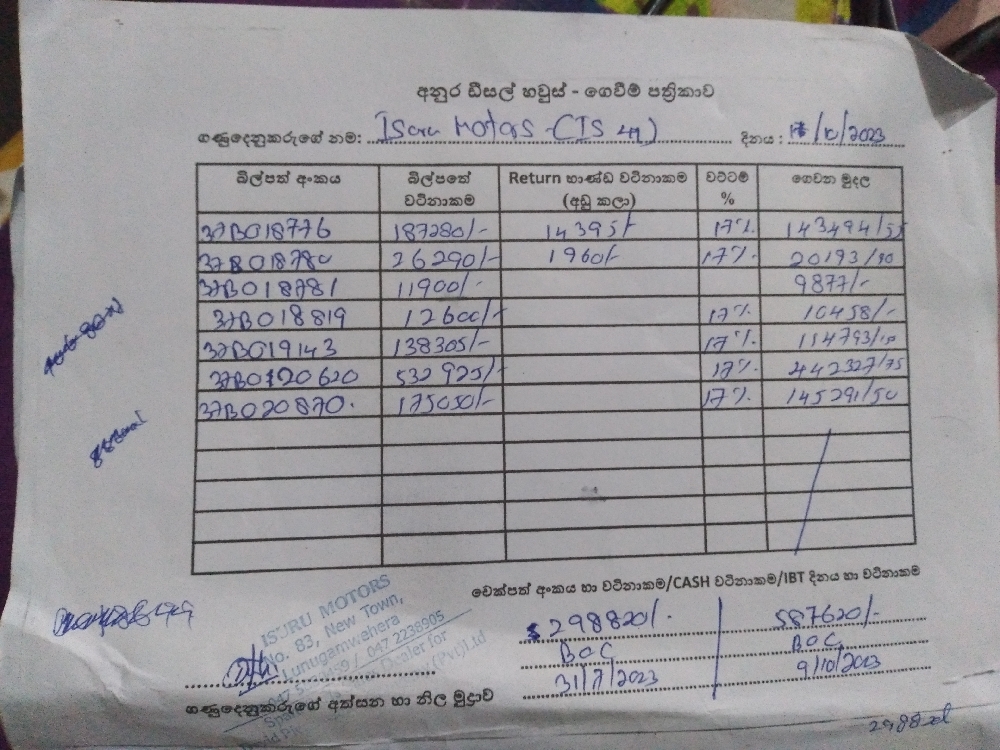 අනුර ඩීසල් හවුස් - ගෙවීම් පත්‍රිකාව
ගණුදෙනුකරුගේ නම: Isuru Motors - (TS ...) දිනය : 17/10/2023
බිල්පත් අංකය බිල්පතේ වටිනාකම Return භාණ්ඩ වටිනාකම (අඩු කලා) වට්ටම % ගෙවන මුදල
37B018776 187280/- 14395/- 17% 143494/55
37B018780 26290/- 1960/- 17% 20193/90
37B018781 11900/- 9877/-
37B018819 12600/- 17% 10458/-
37B019143 138305/- 17% 114793/15
37B0120620 532925/- 17% 442327/75
37B020870. 175050/- 17% 145291/50
චෙක්පත් අංකය හා වටිනාකම/CASH වටිනාකම/IBT දිනය හා වටිනාකම
298820/- 587620/-
BOC BOC
31/7/2023 9/10/2023
ISURU MOTORS
No. 83, New Town,
Lunugamwehera
/ 047 2238905
Dealer for
(Pvt) Ltd
ගණුදෙනුකරුගේ අත්සන හා නිල මුද්‍රාව